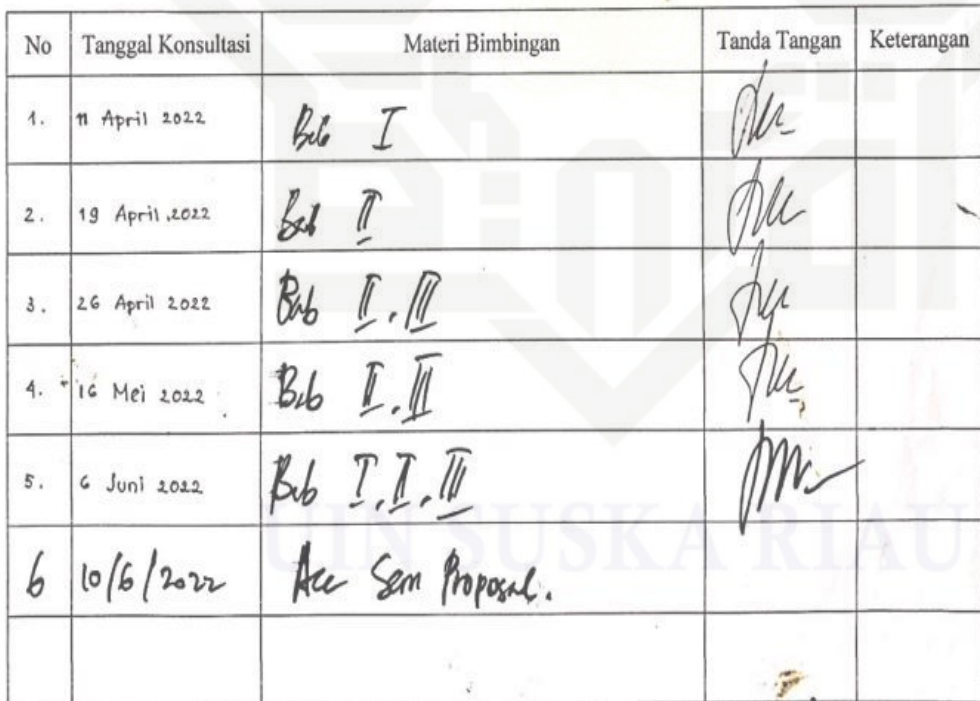 No Tanggal Konsultasi Materi Bimbingan Tanda Tangan Keterangan
1. 11 April 2022 Bab I
2. 19 April 2022 Bab II
3. 26 April 2022 Bab II, III
4. 16 Mei 2022 Bab II, III
5. 6 Juni 2022 Bab I, II, III
UIN SUSKA RIAU
6 10/6/2022 Acc Sem Proposal.